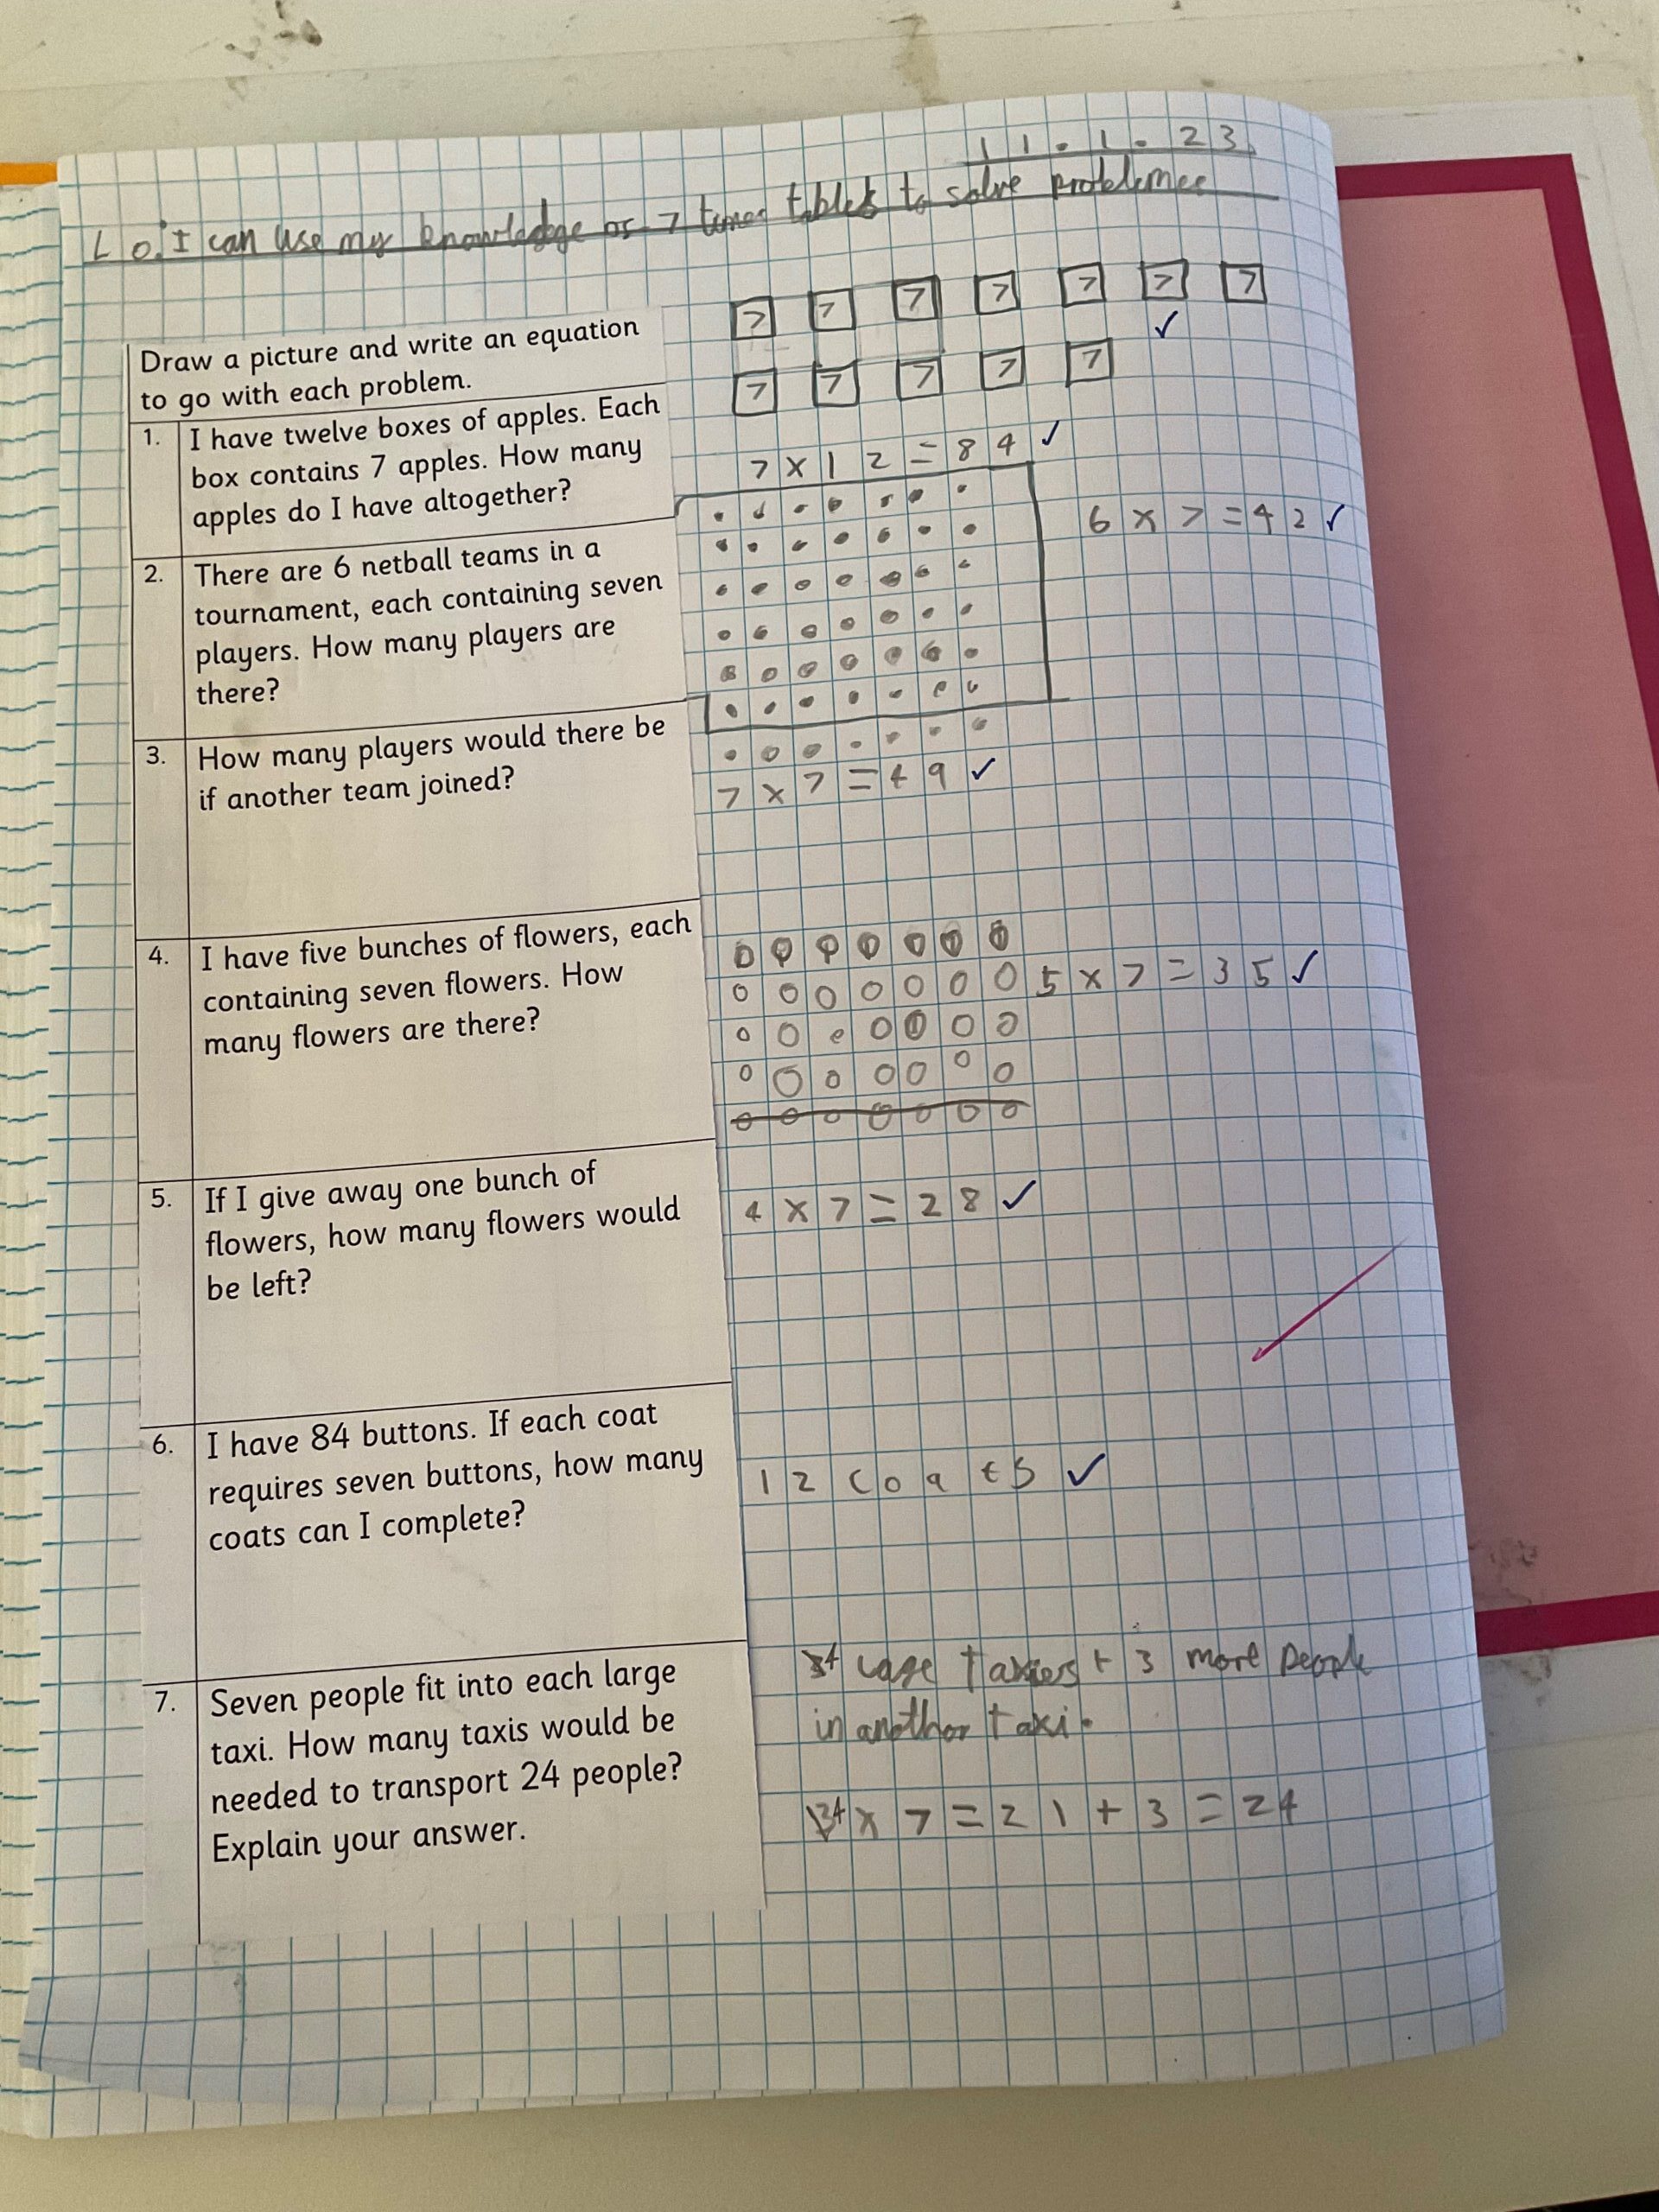 11.1.23
L O: I can use my knowledge of 7 times tables to solve problemes
7 7 7 7 7 7 7
Draw a picture and write an equation
to go with each problem.
7 7 7 7 7
1. I have twelve boxes of apples. Each
box contains 7 apples. How many
apples do I have altogether?
7 x 12 = 84 ✓
2. There are 6 netball teams in a
tournament, each containing seven
players. How many players are
there?
6 x 7 = 42 ✓
3. How many players would there be
if another team joined?
7 x 7 = 49 ✓
4. I have five bunches of flowers, each
containing seven flowers. How
many flowers are there?
5 x 7 = 35 ✓
5. If I give away one bunch of
flowers, how many flowers would
be left?
4 x 7 = 28 ✓
6. I have 84 buttons. If each coat
requires seven buttons, how many
coats can I complete?
12 coats ✓
7. Seven people fit into each large
taxi. How many taxis would be
needed to transport 24 people?
Explain your answer.
taxiers + 3 more people
in another taxi.
x 7 = 21 + 3 = 24